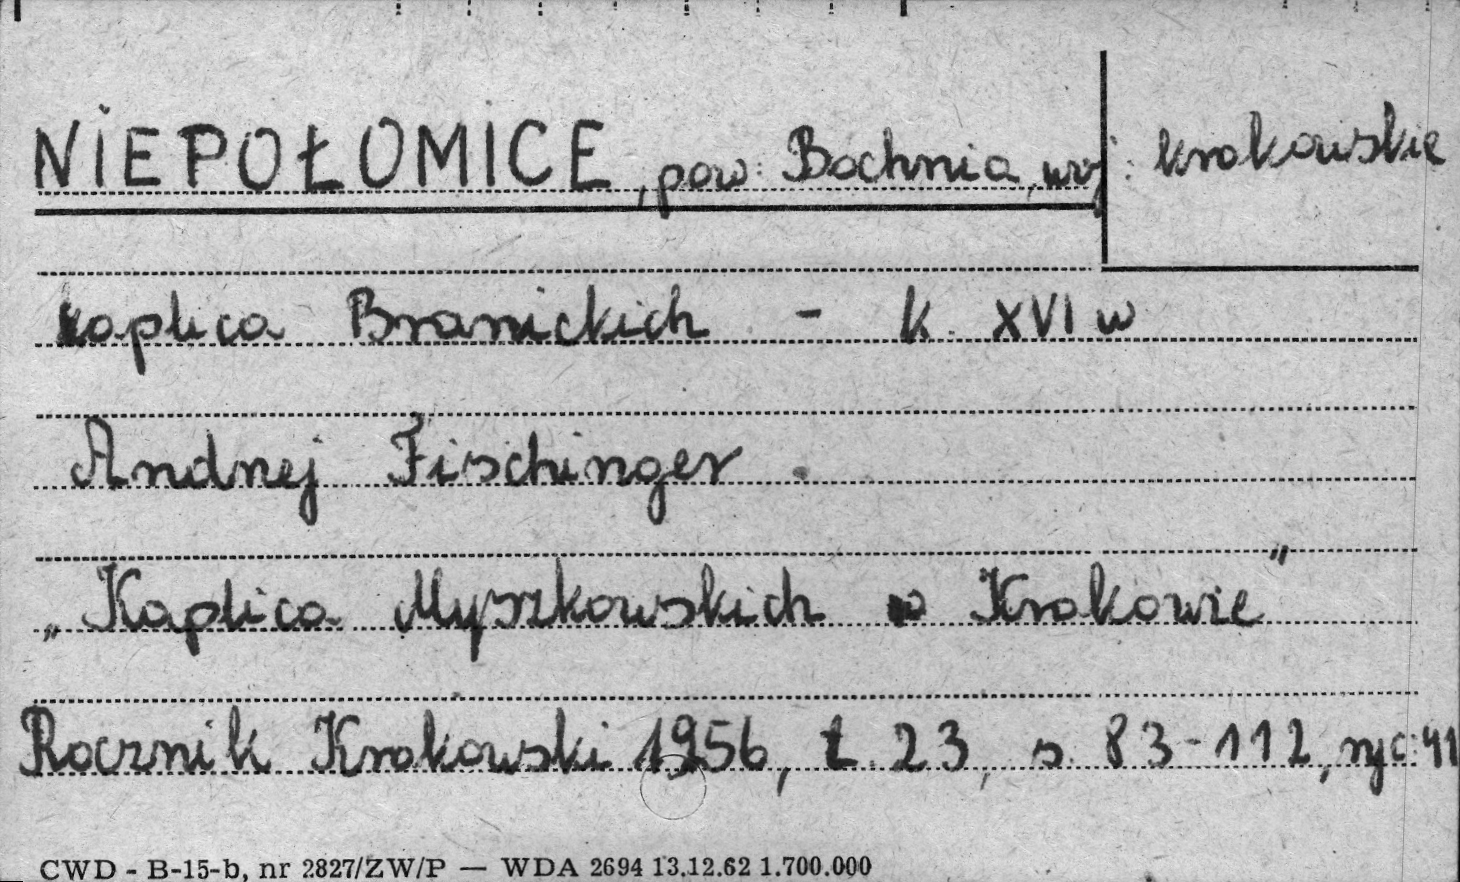 NIEPOŁOMICE, pow. Bochnia, woj. krakowskie
kaplica Branickich - k. XVI w
Andrzej Fischinger.
„Kaplica Myszkowskich w Krakowie"
Rocznik Krakowski 1956, t. 23, s. 83-112, ryc. 41
CWD - B-15-b, nr 2827/ZW/P — WDA 2694 13.12.62 1.700.000